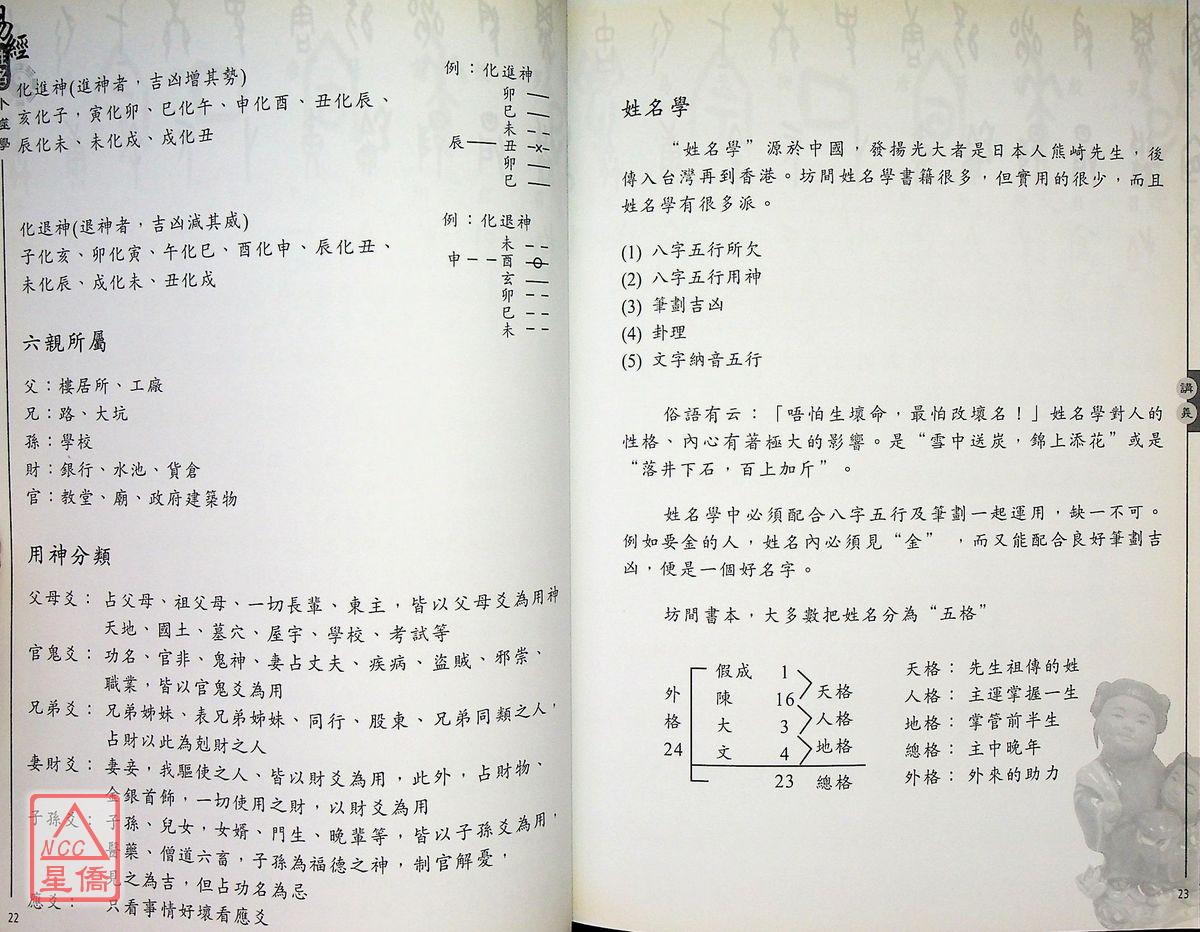 易經
卜筮學
化進神(進神者，吉凶增其勢)
亥化子，寅化卯、巳化午、申化酉、丑化辰、
辰化未、未化戌、戌化丑
例：化進神
卯
巳
未
辰 丑 x
卯
巳
化退神(退神者，吉凶減其威)
子化亥、卯化寅、午化巳、酉化申、辰化丑、
未化辰、戌化未、丑化戌
例：化退神
未
申 酉
玄
卯
巳
未
六親所屬
父：樓居所、工廠
兄：路、大坑
孫：學校
財：銀行、水池、貨倉
官：教堂、廟、政府建築物
用神分類
父母爻： 占父母、祖父母、一切長輩、東主，皆以父母爻為用神
天地、國土、墓穴、屋宇、學校、考試等
官鬼爻： 功名、官非、鬼神、妻占丈夫、疾病、盜賊、邪崇、
職業，皆以官鬼爻為用
兄弟爻： 兄弟姊妹、表兄弟姊妹、同行、股東、兄弟同類之人，
占財以此為剋財之人
妻財爻： 妻妾，我驅使之人、皆以財爻為用，此外，占財物、
金銀首飾，一切使用之財，以財爻為用
子孫爻： 子孫、兒女，女婿、門生、晚輩等，皆以子孫爻為用，
醫藥、僧道六畜，子孫為福德之神，制官解憂，
見之為吉，但占功名為忌
應爻： 只看事情好壞看應爻
22
NCC
星僑
姓名學
“姓名學”源於中國，發揚光大者是日本人熊崎先生，後
傳入台灣再到香港。坊間姓名學書籍很多，但實用的很少，而且
姓名學有很多派。
(1) 八字五行所欠
(2) 八字五行用神
(3) 筆劃吉凶
(4) 卦理
(5) 文字納音五行
俗語有云：「唔怕生壞命，最怕改壞名！」姓名學對人的
性格、內心有著極大的影響。是“雪中送炭，錦上添花”或是
“落井下石，百上加斤”。
姓名學中必須配合八字五行及筆劃一起運用，缺一不可。
例如要金的人，姓名內必須見“金”，而又能配合良好筆劃吉
凶，便是一個好名字。
坊間書本，大多數把姓名分為“五格”
外格 24
假成 1
陳 16 天格
大 3 人格
文 4 地格
23 總格
天格： 先生祖傳的姓
人格： 主運掌握一生
地格： 掌管前半生
總格： 主中晚年
外格： 外來的助力
講義
23